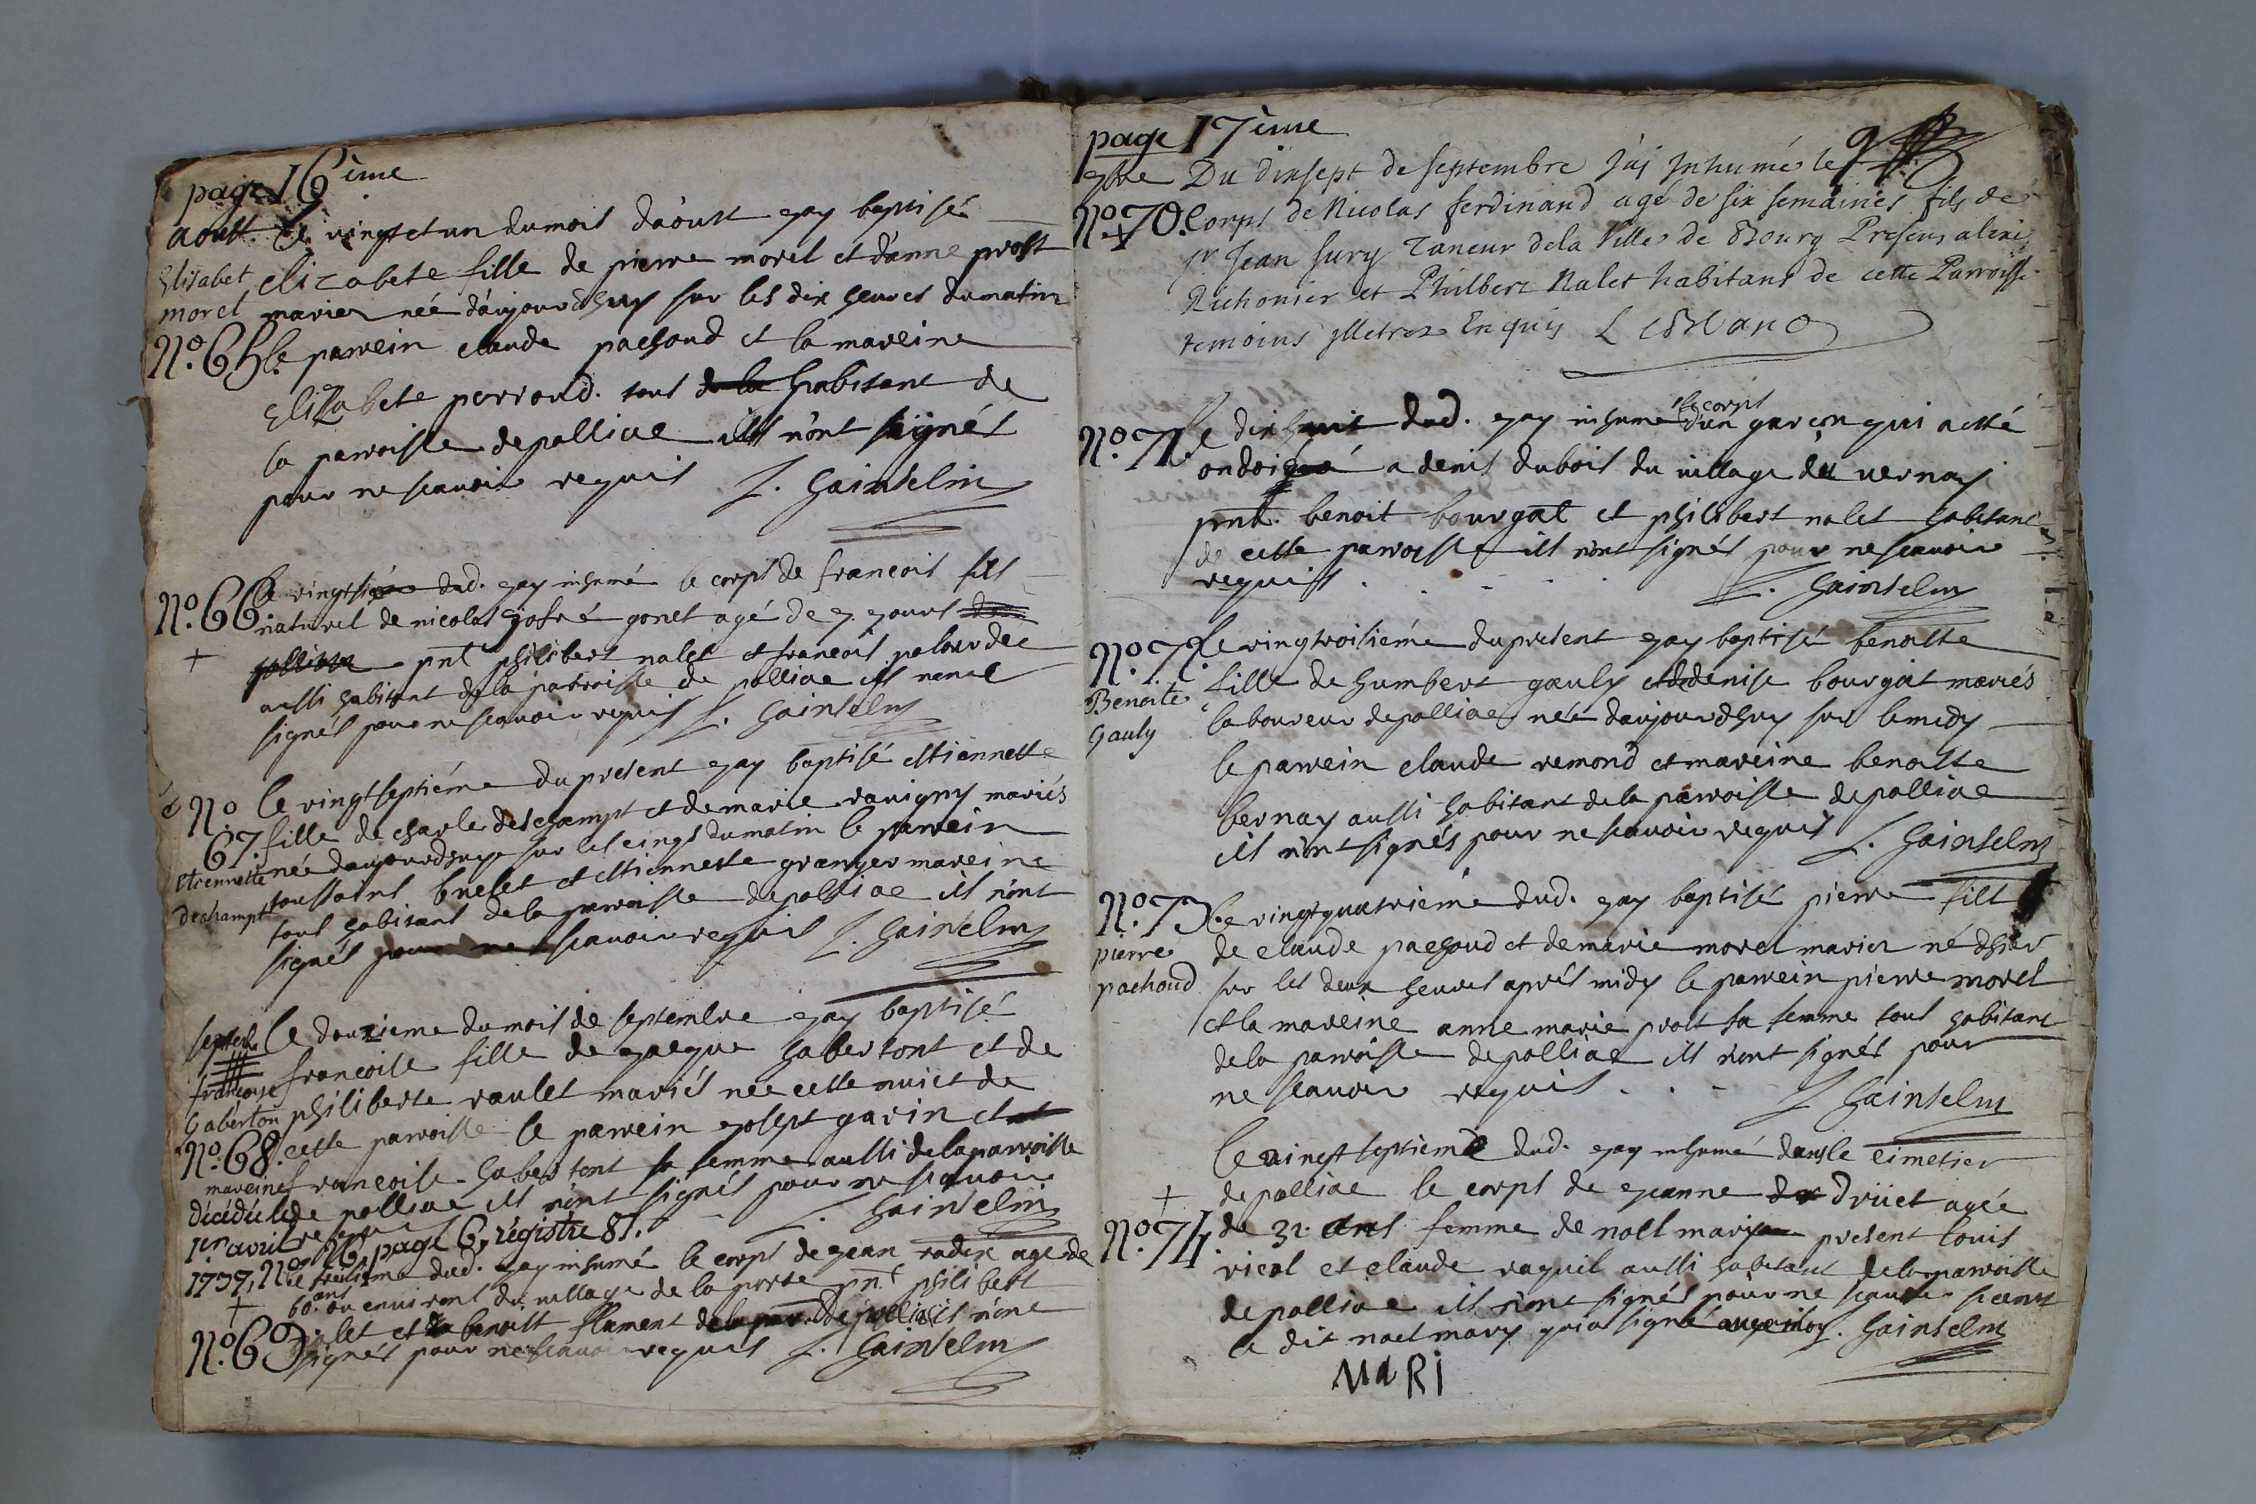 page 16ème
aoust. le vingt et un du mois d'aoust gay baptisé
Elisabet elizabete fille de pierre morel et d'anne prost
morel mariez née d'aujourdhuy sur les dix heures du matin
N.º 65 le parrein claude pachoud et la mareine
Elizabete perroud. tous de la habitant de
la parroisse de polliac ils n'ont signés
pour ne scavoir requis J. Gainselin
N.º 66. le dud. gay inhumé le corps de francois fils
naturel de nicolas gonet agé de 7 jours
+ pnt philibert nalet et francois palourdee
aussi habitant de la parroisse de polliac ils nont
signés pour ne scavoir requis J. Gainselin
Nº le vingt septiéme du present gay baptisé estiennette
67 fille de charle deschampt et de marie ravigny mariés
née daujourdhuy sur les cinqs du matin le parrein
Etiennette toussaint brelet et estiennette granger mareine
dechampt tous habitant de la parroisse de polliac ils n'ont
signés pour ne scavoir requis J. Gainselin
septembre le douzieme du mois de septembre gay baptisé
francoise francoise fille de jacque gabertont et de
Gaberton philiberte raulet mariés née cette nuict de
Nº 68. cette parroisse le parrein joseph garin et
mareine francoise gabertont sa femme aussi de la parroisse
décédée le de polliac ils n'ont signés pour ne scavoir
1er avril requis J. Gainselin
1737, Nº 26, page 6, régistre 81.
le treiziéme dud. gay inhumé le corps de jean radix agé de
+ 60. ans ou environs du village de la porte pnt philibert
N.º 69 nalet et benoist flament de la par. de polliac ils n'ont
signés pour ne scavoir requis J. Gainselin
page 17ème
7bre Du dixsept de septembre j'ai inhumé le
Nº 70. Corps de Nicolas ferdinand agé de six semaines fils de
+
sr Jean Sury Taneur de la Ville de Bourg Presens
Richonier et Philbert Nalet habitans de cette Parroisse
temoins illetrez Enquis LeBlanc
N.º 71. le dixhuit dud. gay inhumé le corps d'un garcon qui a esté
ondoigné a denis dubois du village de vernay
pnt. benoit bourgat et philibert nalet habitant
de cette parroisse ils n'ont signés pour ne scavoir
requis . J. Gainselin
N.º 72. le vingtroisiéme du present gay baptisé benoitte
Benoite fille de humbert gauly et de denise bourgat mariés
Gauly laboureur de polliac née daujourdhuy sur le midy
le parrein claude remond et mareine benoitte
bernay aussi habitant de la parroisse de polliac
ils n'ont signés pour ne scavoir requis J. Gainselin
N.º 73 le vingt quatriéme dud. gay baptisé pierre fils
pierre de claude pachoud et de marie morel mariez né dhier
pachoud sur les deux heures aprés midy le parrein pierre morel
et la mareine anne marie prost sa femme tous habitant
de la parroisse de polliac ils n'ont signés pour
ne scavoir requis . . - J Gainselin
le vingt septieme dud. gay inhumé dans le cimetier
+ de polliac le corps de jeanne drüet agée
N.º 74. de 32. ans femme de noel mary present louis
vicol et claude raquil aussi habitant de la parroisse
de polliac ils n'ont signés pour ne scavoir
le dit noel mary qui a signé avec moy J. Gainselin
MaRi